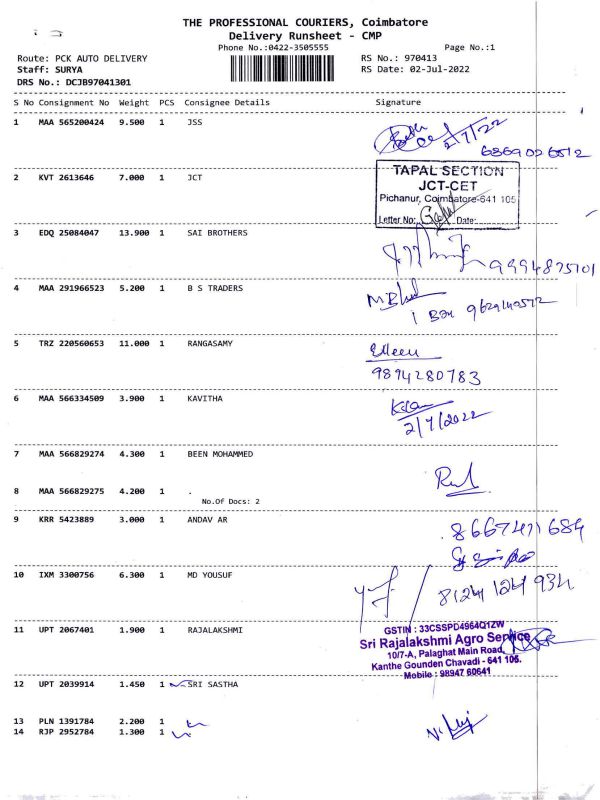 THE PROFESSIONAL COURIERS, Coimbatore
Delivery Runsheet - CMP
Phone No.:0422-3505555 Page No.:1
Route: PCK AUTO DELIVERY RS No.: 970413
Staff: SURYA RS Date: 02-Jul-2022
DRS No.: DCJB97041301
S No Consignment No Weight PCS Consignee Details Signature
1 MAA 565200424 9.500 1 JSS
2/7/22
6369026512
2 KVT 2613646 7.000 1 JCT
TAPAL SECTION
JCT-CET
Pichanur, Coimbatore-641 105
Letter No: Date:
3 EDQ 25084047 13.900 1 SAI BROTHERS
9994875101
4 MAA 291966523 5.200 1 B S TRADERS
5 TRZ 220560653 11.000 1 RANGASAMY
9894280783
6 MAA 566334509 3.900 1 KAVITHA
2/7/2022
7 MAA 566829274 4.300 1 BEEN MOHAMMED
8 MAA 566829275 4.200 1 .
No.Of Docs: 2
9 KRR 5423889 3.000 1 ANDAV AR
10 IXM 3300756 6.300 1 MD YOUSUF
8124 124 934
11 UPT 2067401 1.900 1 RAJALAKSHMI
GSTIN : 33CSSPD4964Q1ZW
Sri Rajalakshmi Agro Service
10/7-A, Palaghat Main Road,
Kanthe Gounden Chavadi - 641 105.
Mobile : 98947 60641
12 UPT 2039914 1.450 1 SRI SASTHA
13 PLN 1391784 2.200 1
14 RJP 2952784 1.300 1